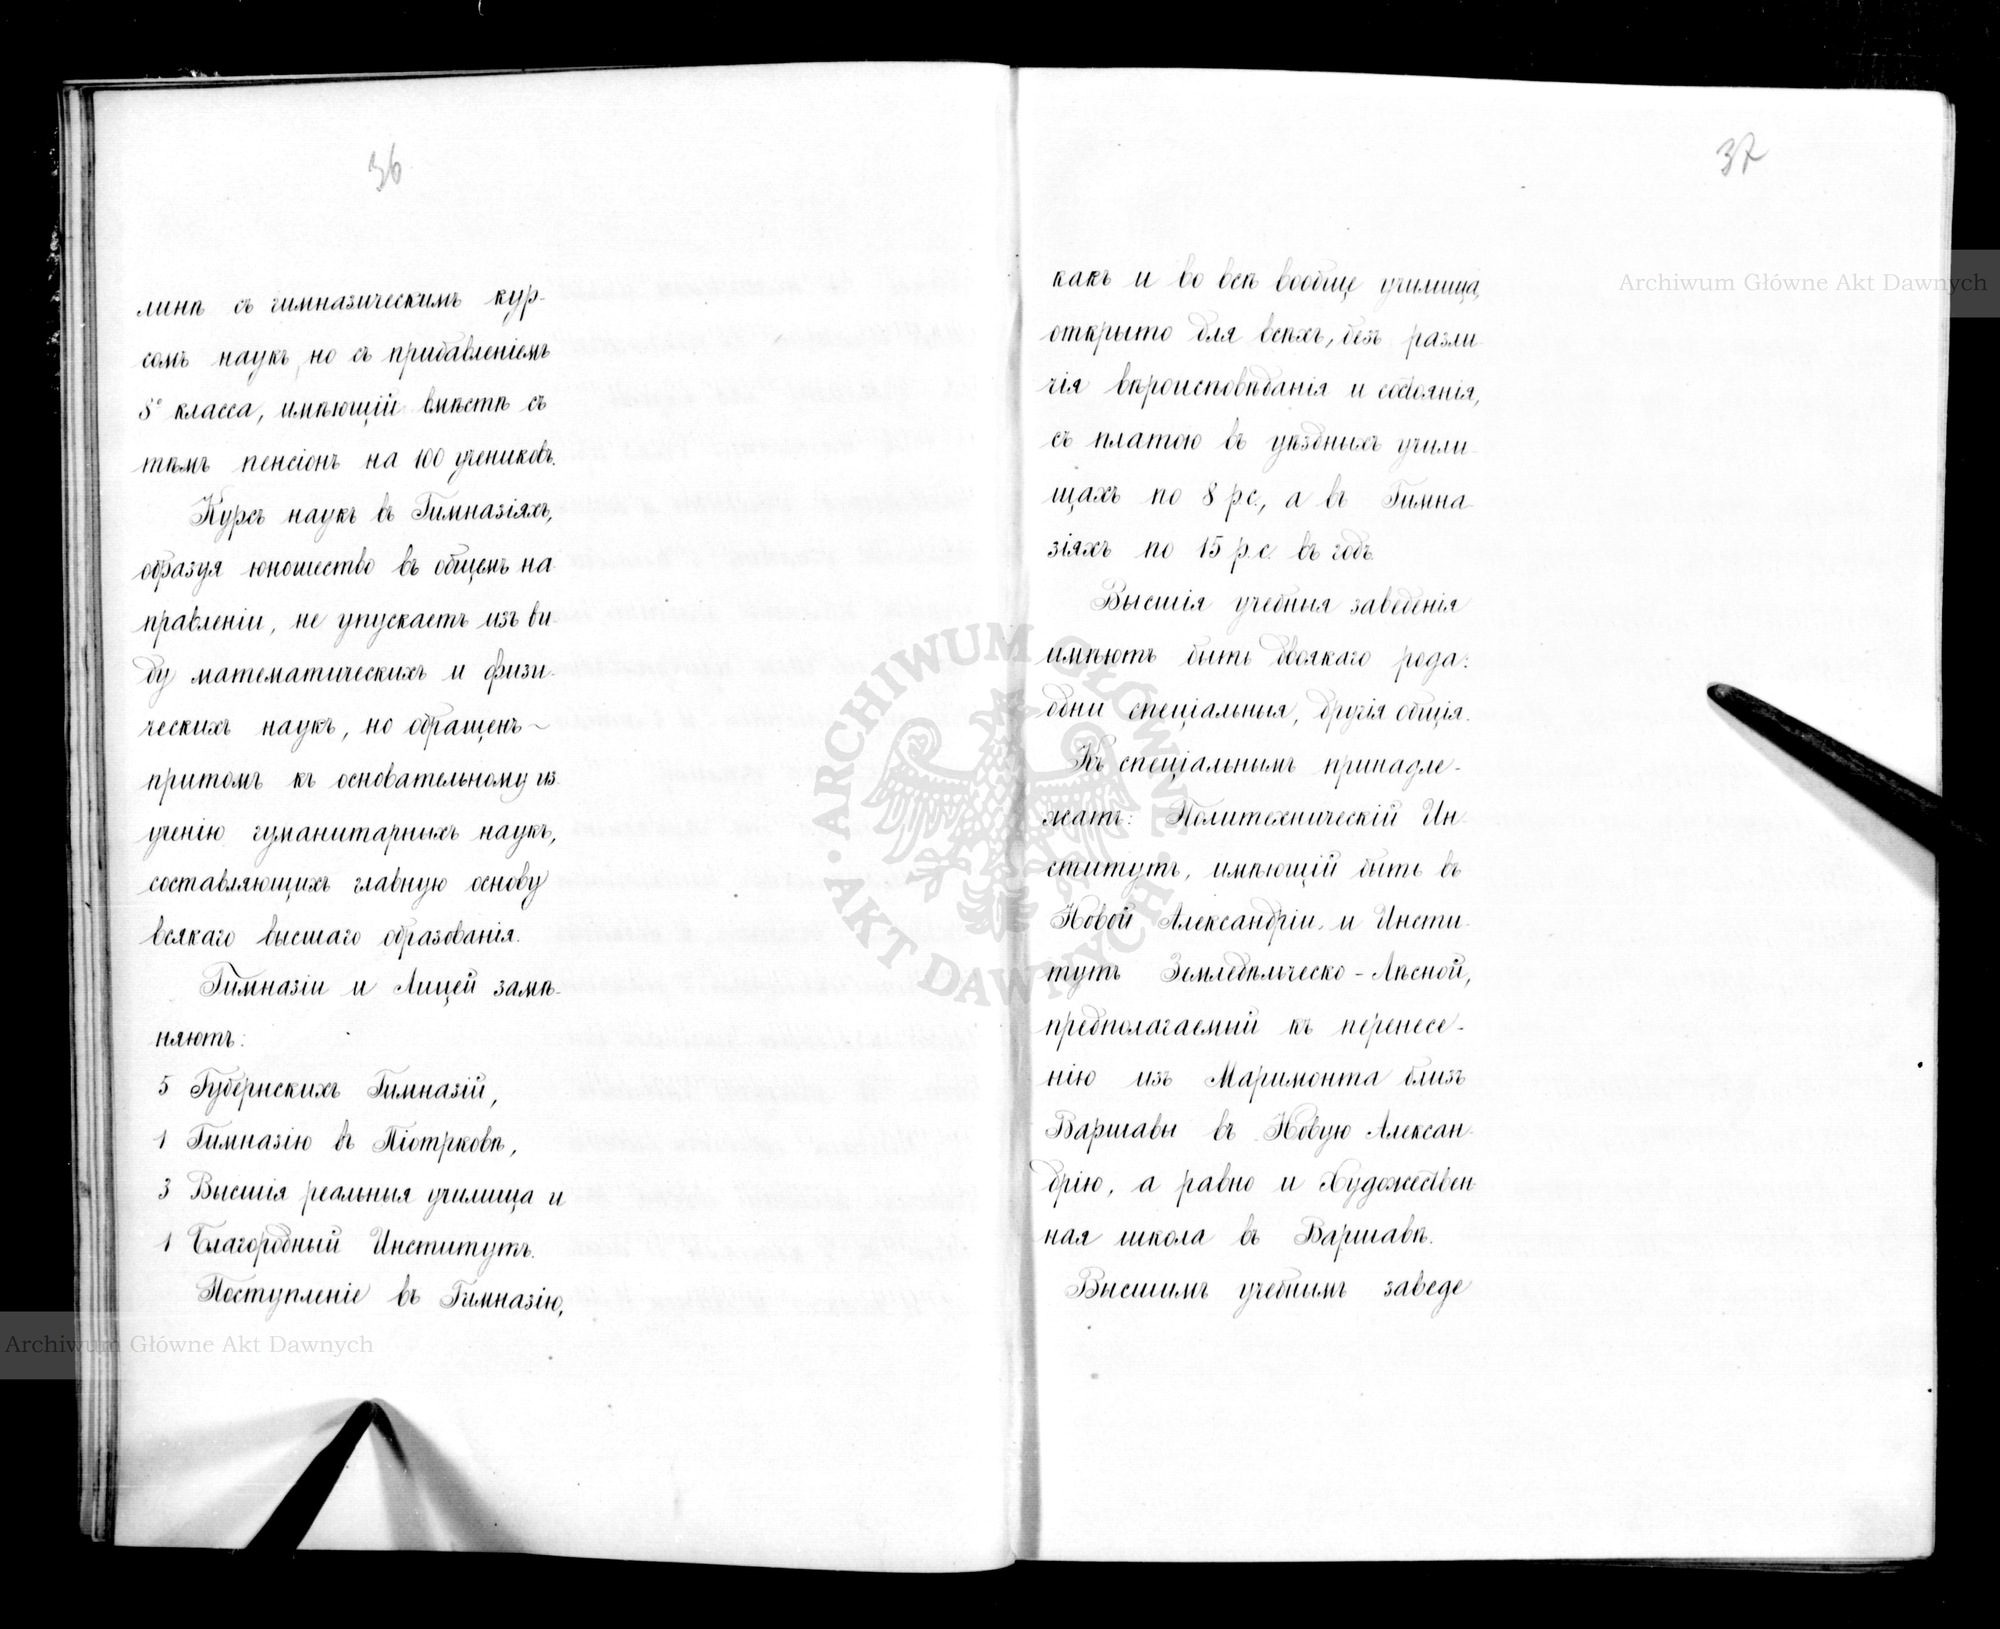 36
линѣ съ гимназическимъ кур-
сомъ наукъ, но съ прибавленіемъ
8º класса, имѣющій вмѣстѣ съ
тѣмъ пенсіонъ на 100 учениковъ.
Курсъ наукъ въ Гимназіяхъ,
образуя юношество въ общемъ на-
правленіи, не упускаетъ изъ ви
ду математическихъ и физи-
ческихъ наукъ, но обращенъ
притомъ къ основательному из
ученію гуманитарныхъ наукъ,
составляющихъ главную основу
всякаго высшаго образованія.
Гимназіи и Лицей замѣ-
няютъ:
5 Губернскихъ Гимназій,
1 Гимназію въ Піотрковѣ,
3 Высшія реальныя училища и
1 Благородный Институтъ.
Поступленіе въ Гимназію,
37
какъ и во всѣ вообще училища,
открыто для всѣхъ, безъ разли
чія вѣроисповѣданія и состоянія,
съ платою въ уѣздныхъ учили-
щахъ по 8 р.с., а въ Гимна-
зіяхъ по 15 р.с. въ годъ.
Высшія учебныя заведенія
имѣютъ быть двоякаго рода:
одни спеціальныя, другія общія.
Къ спеціальнымъ принадле-
жатъ: Политехническій Ин-
ститутъ, имѣющій быть въ
Новой Александріи, и Инсти-
тутъ Земледѣльческо-Лѣсной,
предполагаемый къ перенесе-
нію изъ Маримонта близъ
Варшавы въ Новую Алексан-
дрію, а равно и Художествен
ная школа въ Варшавѣ.
Высшимъ учебнымъ заведе
Archiwum Główne Akt Dawnych
Archiwum Główne Akt Dawnych
ARCHIWUM GŁÓWNE AKT DAWNYCH